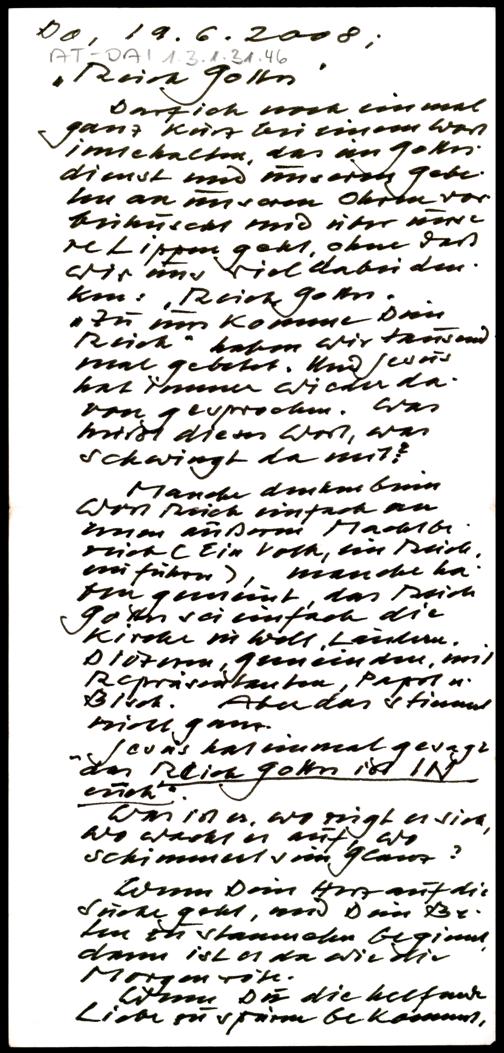 Do, 19.6.2008;
AT-DAI 1.3.1.31.46
"Reich Gottes"
Darf ich noch einmal
ganz kurz bei einem Wort
innehalten, das im Gottes
dienst und unseren Gebe-
ten an unseren Ohren vor
beihuscht und über unse
re Lippen geht, ohne daß
wir uns viel dabei den-
ken: "Reich Gottes.
"Zu uns komme Dein
Reich" haben wir tausend
mal gebetet. Und Jesus
hat immer wieder da-
von gesprochen. Was
heißt dieses Wort, was
schwingt da mit?
Manche denken beim
Wort Reich einfach an
einen äußeren Machtbe-
reich (Ein Volk, ein Reich,
ein Führer), manche ha-
ben gemeint, das Reich
Gottes sei einfach die
Kirche in Welt, Ländern.
Diözesen, Gemeinden, mit
Repräsentanten, Papst u.
Bisch. Aber das stimmt
nicht ganz.
Jesus hat einmal gesagt
"das Reich Gottes ist IN
euch".
Was ist es, wo zeigt es sich,
wo wacht es auf, wo
schimmert sein Glanz?
Wenn Dein Herz auf die
Suche geht, und Dein Be-
ten zu stammeln beginnt,
dann ist es da wie die
Morgenröte.
Wenn Du die helfende
Liebe zu spüren bekommst,